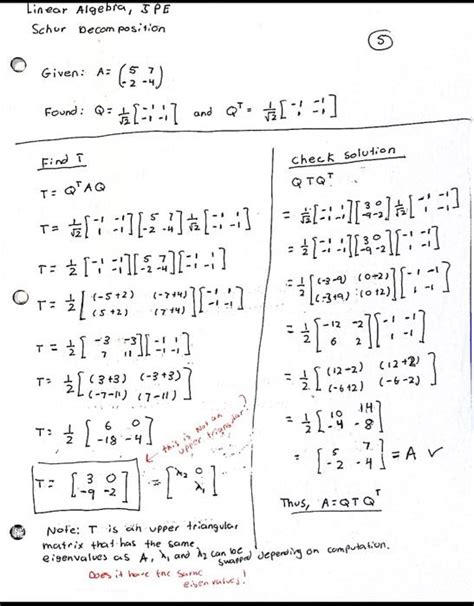 Linear Algebra, JPE
Schur Decomposition
5
Given: A = (5 7 -2 -4)
Found: Q = 1/√2 [-1 1 -1 -1] and Qᵀ = 1/√2 [-1 -1 1 -1]
Find T
T = QᵀAQ
T = 1/√2 [-1 -1 1 -1] [5 7 -2 -4] 1/√2 [-1 1 -1 -1]
T = 1/2 [-1 -1 1 -1] [5 7 -2 -4] [-1 1 -1 -1]
T = 1/2 [(-5+2) (-7+4) (5+2) (7+4)] [-1 1 -1 -1]
T = 1/2 [-3 -3 7 11] [-1 1 -1 -1]
T = 1/2 [(3+3) (-3+3) (-7-11) (7-11)]
T = 1/2 [6 0 -18 -4]
this is not an upper triangular!
T = [3 0 -9 -2] = [λ₂ 0 λ₁]
Check solution
QTQᵀ
= 1/√2 [-1 1 -1 -1] [3 0 -9 -2] 1/√2 [-1 -1 1 -1]
= 1/2 [-1 1 -1 -1] [3 0 -9 -2] [-1 -1 1 -1]
= 1/2 [(-3-9) (0-2) (-3+9) (0+2)] [-1 -1 1 -1]
= 1/2 [-12 -2 6 2] [-1 -1 1 -1]
= 1/2 [(12-2) (12+2) (-6+2) (-6-2)]
= 1/2 [10 14 -4 -8]
= [5 7 -2 -4] = A ✓
Thus, A = QTQᵀ
Note: T is an upper triangular
matrix that has the same
eigenvalues as A, λ₁ and λ₂ can be swapped depending on computation.
Does it have the same eigenvalues!